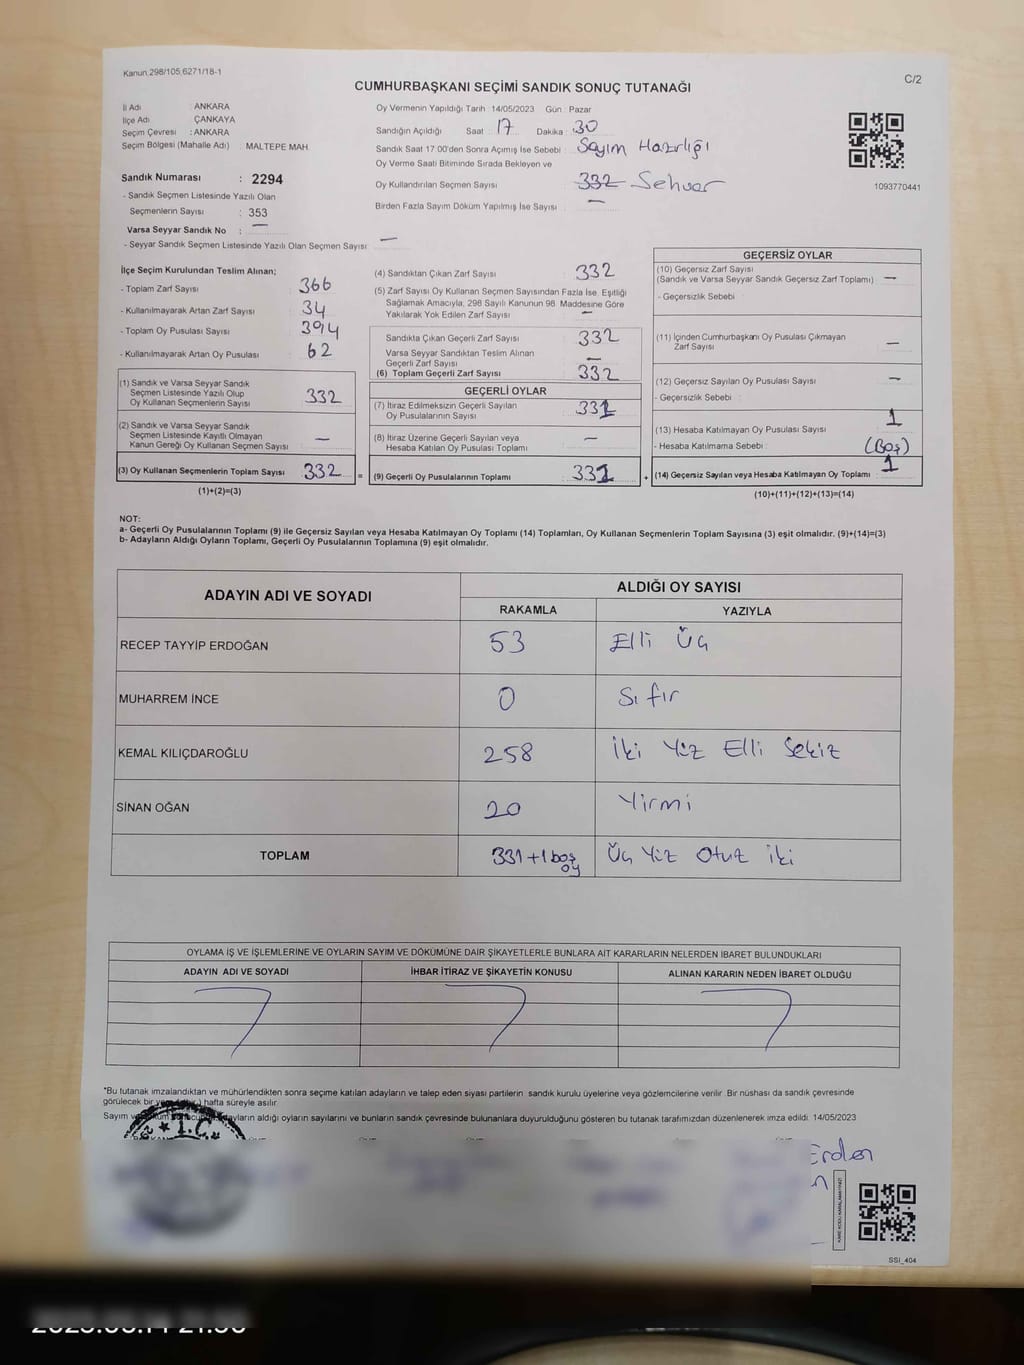 Kanun 298/105,6271/18-1
C/2
CUMHURBAŞKANI SEÇİMİ SANDIK SONUÇ TUTANAĞI
İl Adı : ANKARA
İlçe Adı : ÇANKAYA
Seçim Çevresi : ANKARA
Seçim Bölgesi (Mahalle Adı) : MALTEPE MAH.
Sandık Numarası : 2294
- Sandık Seçmen Listesinde Yazılı Olan
Seçmenlerin Sayısı : 353
Varsa Seyyar Sandık No : —
- Seyyar Sandık Seçmen Listesinde Yazılı Olan Seçmen Sayısı : —
Oy Vermenin Yapıldığı Tarih 14/05/2023 Gün : Pazar
Sandığın Açıldığı Saat : 17 Dakika : 30
Sandık Saat 17:00'den Sonra Açılmış İse Sebebi : Sayım Hazırlığı
Oy Verme Saati Bitiminde Sırada Bekleyen ve
Oy Kullandırılan Seçmen Sayısı : 332 Sehven
Birden Fazla Sayım Döküm Yapılmış İse Sayısı : —
1093770441
İlçe Seçim Kurulundan Teslim Alınan;
- Toplam Zarf Sayısı : 366
- Kullanılmayarak Artan Zarf Sayısı : 34
- Toplam Oy Pusulası Sayısı : 394
- Kullanılmayarak Artan Oy Pusulası : 62
(1) Sandık ve Varsa Seyyar Sandık
Seçmen Listesinde Yazılı Olup
Oy Kullanan Seçmenlerin Sayısı : 332
(2) Sandık ve Varsa Seyyar Sandık
Seçmen Listesinde Kayıtlı Olmayan
Kanun Gereği Oy Kullanan Seçmen Sayısı : —
(3) Oy Kullanan Seçmenlerin Toplam Sayısı : 332
(1)+(2)=(3)
(4) Sandıktan Çıkan Zarf Sayısı : 332
(5) Zarf Sayısı Oy Kullanan Seçmen Sayısından Fazla İse, Eşitliği
Sağlamak Amacıyla, 298 Sayılı Kanunun 98. Maddesine Göre
Yakılarak Yok Edilen Zarf Sayısı : —
Sandıkta Çıkan Geçerli Zarf Sayısı : 332
Varsa Seyyar Sandıktan Teslim Alınan
Geçerli Zarf Sayısı : —
(6) Toplam Geçerli Zarf Sayısı : 332
GEÇERLİ OYLAR
(7) İtiraz Edilmeksizin Geçerli Sayılan
Oy Pusulalarının Sayısı : 331
(8) İtiraz Üzerine Geçerli Sayılan veya
Hesaba Katılan Oy Pusulaları Toplamı : —
= (9) Geçerli Oy Pusulalarının Toplamı : 331
GEÇERSİZ OYLAR
(10) Geçersiz Zarf Sayısı
(Sandık ve Varsa Seyyar Sandık Geçersiz Zarf Toplamı) : —
- Geçersizlik Sebebi
(11) İçinden Cumhurbaşkanı Oy Pusulası Çıkmayan
Zarf Sayısı : —
(12) Geçersiz Sayılan Oy Pusulası Sayısı : —
- Geçersizlik Sebebi :
(13) Hesaba Katılmayan Oy Pusulası Sayısı : 1
- Hesaba Katılmama Sebebi : (Boş)
+ (14) Geçersiz Sayılan veya Hesaba Katılmayan Oy Toplamı : 1
(10)+(11)+(12)+(13)=(14)
NOT:
a- Geçerli Oy Pusulalarının Toplamı (9) ile Geçersiz Sayılan veya Hesaba Katılmayan Oy Toplamı (14) Toplamları, Oy Kullanan Seçmenlerin Toplam Sayısına (3) eşit olmalıdır. (9)+(14)=(3)
b- Adayların Aldığı Oyların Toplamı, Geçerli Oy Pusulalarının Toplamına (9) eşit olmalıdır.
ADAYIN ADI VE SOYADI
ALDIĞI OY SAYISI
RAKAMLA YAZIYLA
RECEP TAYYİP ERDOĞAN 53 Elli Üç
MUHARREM İNCE 0 Sıfır
KEMAL KILIÇDAROĞLU 258 İki Yüz Elli Sekiz
SİNAN OĞAN 20 Yirmi
TOPLAM 331+1 boş oy Üç Yüz Otuz İki
OYLAMA İŞ VE İŞLEMLERİNE VE OYLARIN SAYIM VE DÖKÜMÜNE DAİR ŞİKAYETLERLE BUNLARA AİT KARARLARIN NELERDEN İBARET BULUNDUKLARI
ADAYIN ADI VE SOYADI İHBAR İTİRAZ VE ŞİKAYETİN KONUSU ALINAN KARARIN NEDEN İBARET OLDUĞU
*Bu tutanak imzalandıktan ve mühürlendikten sonra seçime katılan adayların ve talep eden siyasi partilerin sandık kurulu üyelerine veya gözlemcilerine verilir. Bir nüshası da sandık çevresinde
görülecek bir hafta süreyle asılır.
Sayım aldığı oyların sayılarını ve bunların sandık çevresinde bulunanlara duyurulduğunu gösteren bu tutanak tarafımızdan düzenlenerek imza edildi. 14/05/2023
T.C.
Erden
SSI_404